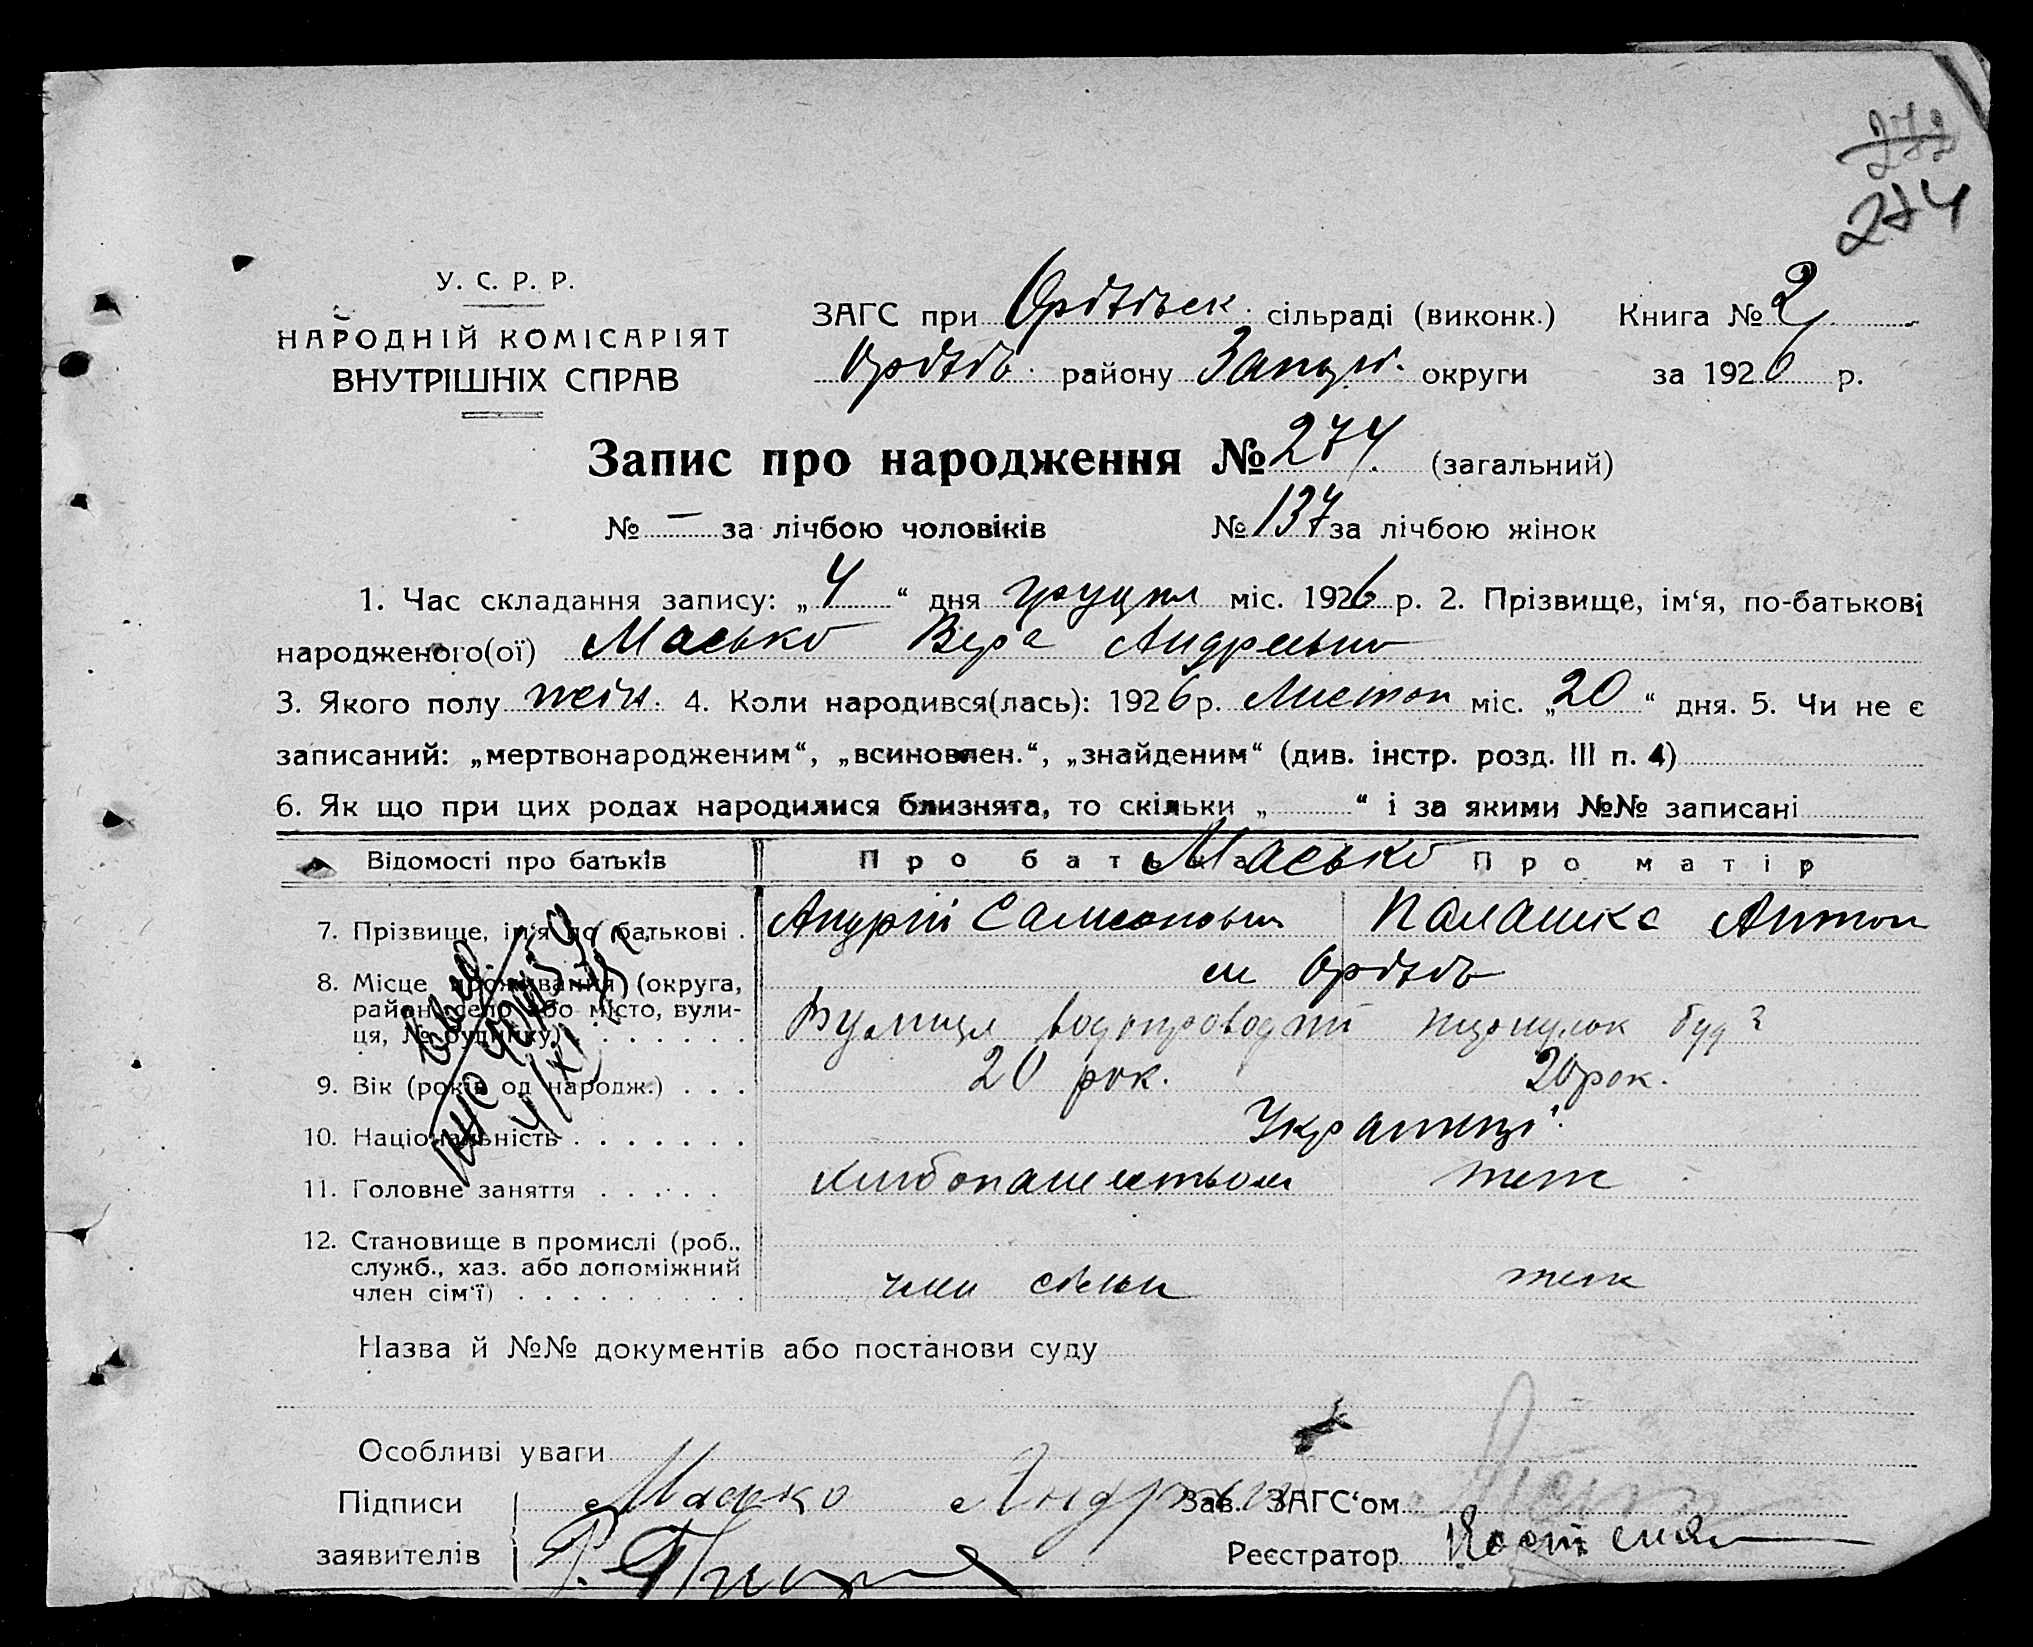 272
274
У. С. Р. Р.
НАРОДНІЙ КОМІСАРІЯТ
ВНУТРІШНІХ СПРАВ
ЗАГС при Оріхівськ. сільраді (виконк.) Книга № 2
Оріхів. району Запор. округи за 1926 р.
Запис про народження № 274 (загальний)
№ — за лічбою чоловіків № 137 за лічбою жінок
1. Час складання запису: „4“ дня грудня міс. 1926 р. 2. Прізвище, ім‘я, по-батькові
народженого(ої) Масько Вера Андреевна
3. Якого полу жін. 4. Коли народився(лась): 1926 р. Листоп міс. „20“ дня. 5. Чи не є
записаний: „мертвонародженим“, „всиновлен.“, „знайденим“ (див. інстр. розд. III п. 4)
6. Як що при цих родах народилися близнята, то скільки „ “ і за якими №№ записані
Відомості про батьків Про батька Масько Про матір
7. Прізвище, ім‘я по батькові . Андрій Самсонович Палашка Антон
8. Місце проживання (округа, м Оріхів
район, село або місто, вули-
ця, № будинку) . . . . . . . Вулиця водопроводний провулок буд ?
9. Вік (років од народж.) . . . 20 рок. 20 рок.
10. Національність . . . . . . . Українці
11. Головне заняття . . . . . Хлібопашеством теж
12. Становище в промислі (роб.,
служб., хаз. або допоміжний
член сім‘ї) . . . . . . . . . член сім'ї теж
Назва й №№ документів або постанови суду
Особливі уваги
Підписи Масько Андрей Зав. ЗАГС‘ом
заявителів Реєстратор